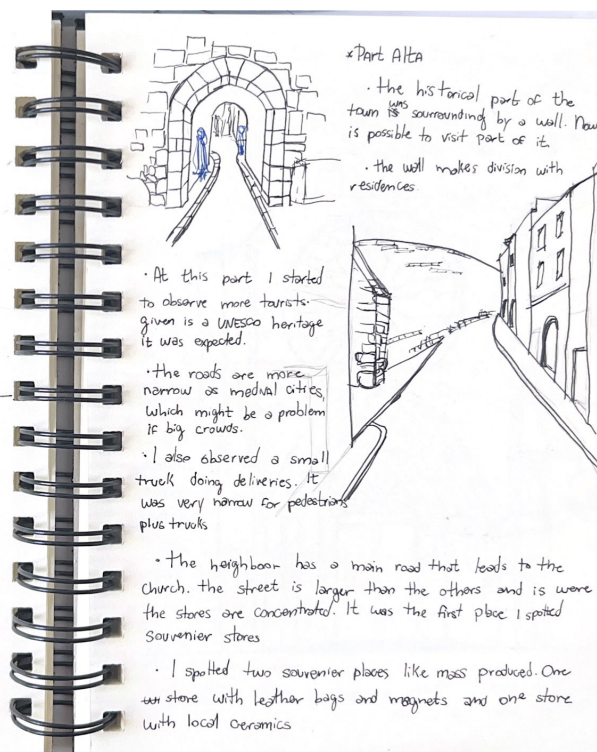 *Part Alta
· the historical part of the
town was sourrounding by a wall. Now
is possible to visit part of it.
· the wall makes division with
residences
· At this part I started
to observe more tourists.
given is a UNESCO heritage
it was expected.
· the roads are more
narrow as medival cities,
which might be a problem
if big crowds.
· I also observed a small
truck doing deliveries. It
was very narrow for pedestrians
plus trucks
· The neighboor has a main road that leads to the
church. the street is larger than the others and is were
the stores are concentrated. It was the first place I spotted
Souvenier stores
· I spotted two souvenier places like mass produced. One
store with leather bags and magnets and one store
with local ceramics